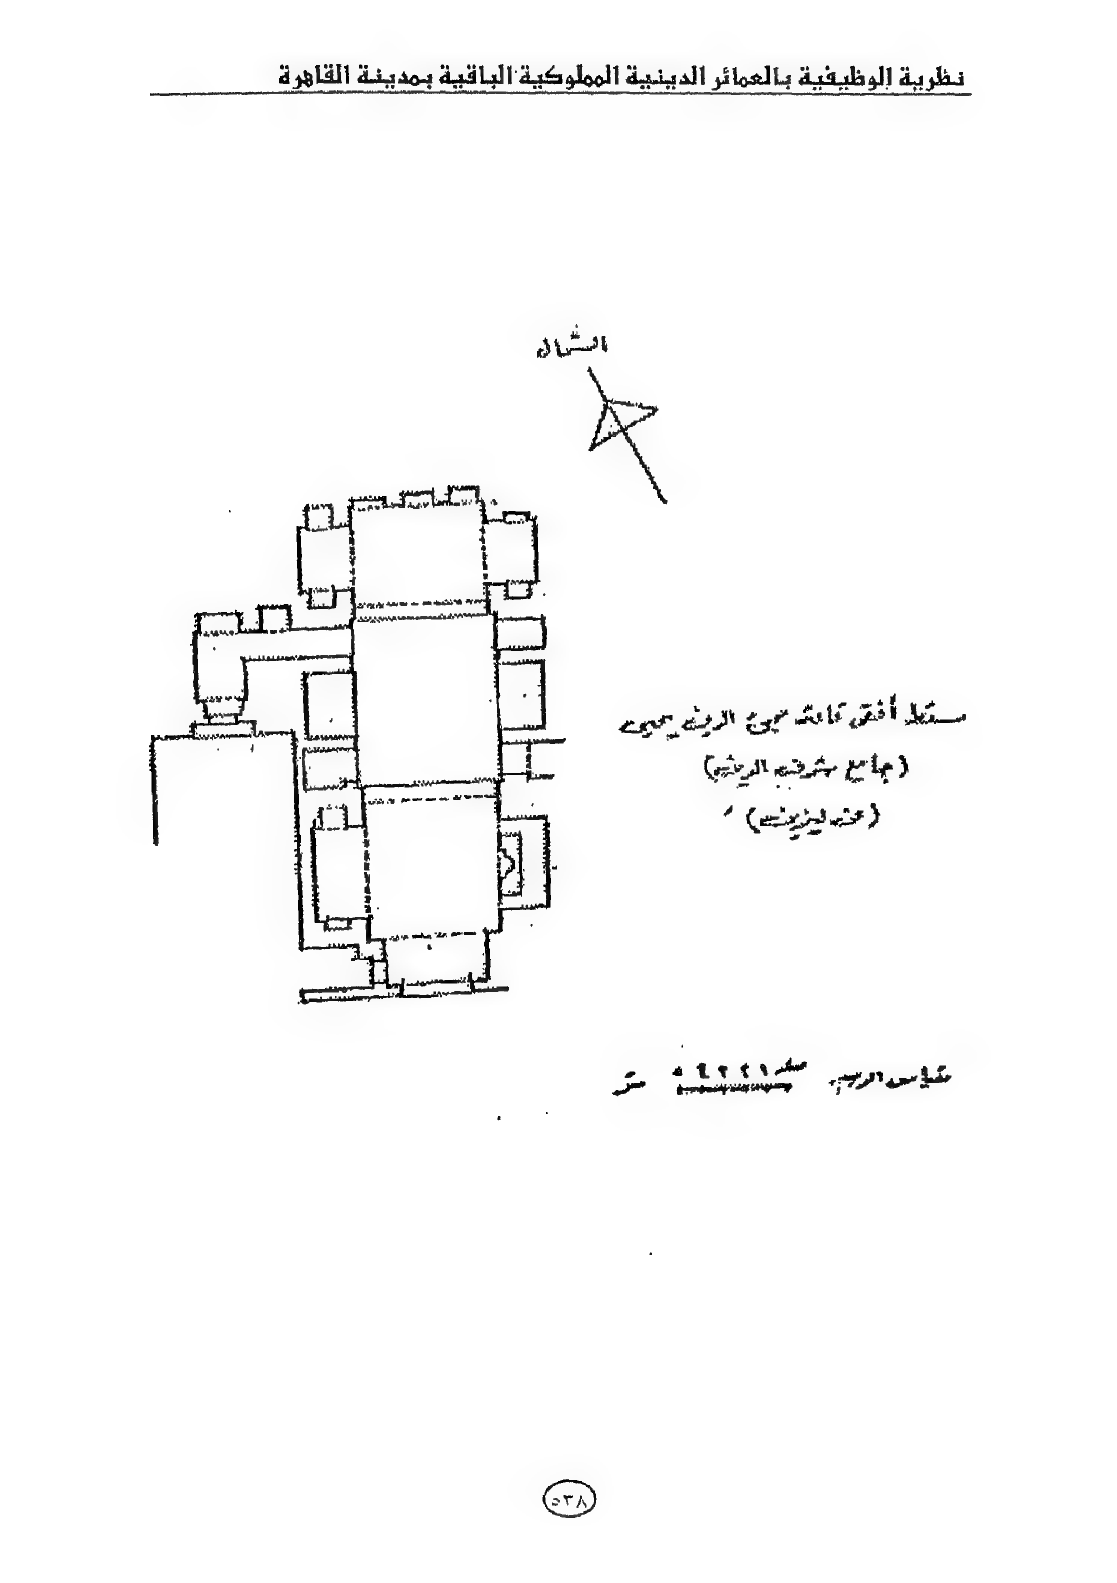 نظرية الوظيفية بالعمائر الدينية المملوكية الباقية بمدينة القاهرة
الشمال
مسقط أفقى قاعة محيى الدين يحيى
(جامع شرف الدين)
(عن ليزين)
مقياس الرسم صفر ١ ٢ ٣ ٤ ٥ متر
٥٣٨